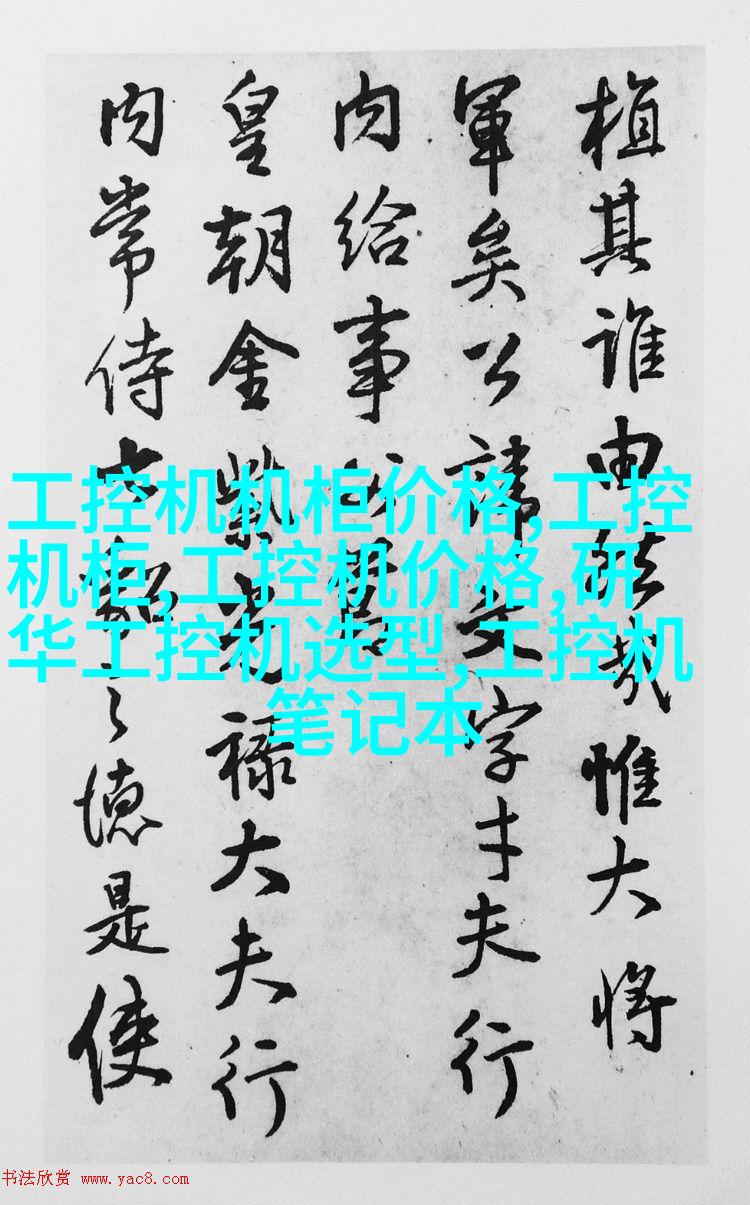 植其誰由哉惟大將
軍矣公諱文字才夫行
内給事
皇朝金紫光祿大夫行
内常侍之德是使
工控机机柜价格,工控
机柜,工控机价格,研
华工控机选型,工控机
笔记本
书法欣赏 www.yac8.com